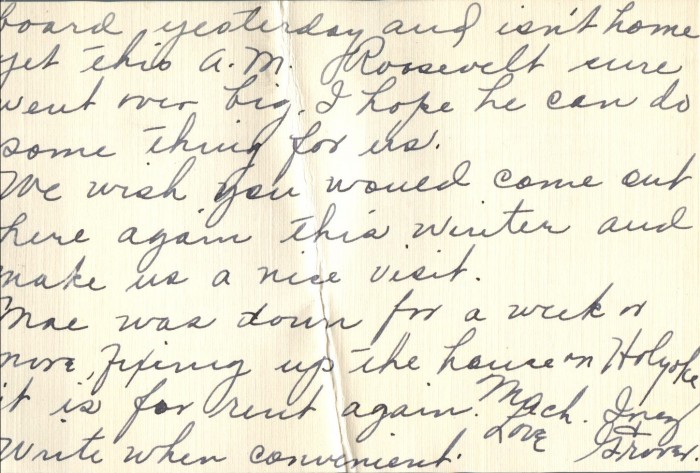 board yesterday and isn't home
yet this A.M. Roosevelt sure
went over big. I hope he can do
some thing for us.
We wish you would come out
here again this winter and
make us a nice visit.
Mae was down for a week or
more, fixing up the house on Holyoke
it is for rent again. Much Inez
Love +
Write when convenient. Grover.